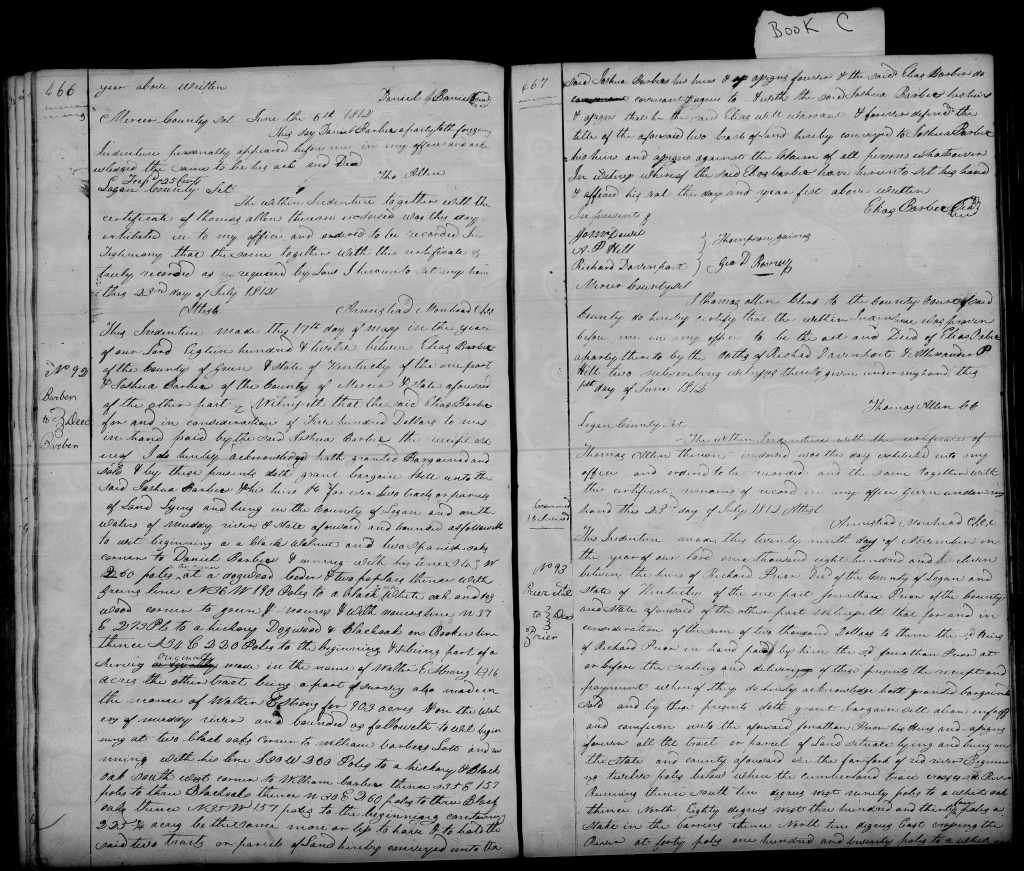 BOOK C
466
year above written
Daniel Barbee Seal
Mercer County Sct June the 6th 1812
This day Daniel Barbee a party to the foregoing
Indenture personally appeared before me in my office and ack
nowledged the same to be his act and Deed
Tho Allen
Logan County Sct
The within Indenture together with the
certificate of Thomas Allen thereon indorsed was this day
exhibited in to my office and ordered to be recorded In
Testimony that the same together with this certificate is
truly recorded as required by Law I hereunto set my hand
this 23rd day of July 1812
Attest Armistead Morehead Clk
No 92
Barbee
to Deed
Barbee
This Indenture made this 17th day of may in the year
of our Lord Eighteen hundred & twelve between Elias Barbee
of the County of Green & State of Kentucky of the one part
& Joshua Barbee of the County of Mercer & State aforesaid
of the other part Witnesseth that the said Elias Barbee
for and in consideration of Five hundred Dollars to me
in hand paid by the said Joshua Barbee the receipt
I do hereby acknowledge hath granted Bargained and
sold & by these presents doth grant bargain & sell unto the
said Joshua Barbee & his heirs for ever two tracts or parcels
of Land Lying and being in the County of Logan and on the
waters of muddy river & State aforesaid and bounded as followeth
to wit beginning at a black walnut and two Spanish oaks
corner to Daniel Barbee & running with his line W
260 poles at a dogwood ceder & two poplars thence with
Greens line N 76 W 190 Poles to a black White oak and dog
wood corner to & with line N 37
E 273 Pls to a hickory Dogwood & Blackoak on line
thence S 34 E 220 Poles to the beginning & being part of a
survey Originally made in the name of Walter E Strong 1916
acres the other tract being a part of survey also made in
the name of Walter E Strong for 903 acres & on the wat
ers of muddy river and bounded as followeth to wit begin
ning at two black oaks corner to William barbees Lott and ru
nning with his line S 30 W 260 Poles to a hickory & Black
oak south west corner to William barbee thence S 55 E 157
poles to three Blackoaks thence N 30 E 260 poles to three Black
oaks thence N 55 W 157 poles to the beginning containing
225 acres be the same more or less to have & to hold the
said two tracts or parcels of Land hereby conveyed unto the
467
said Joshua Barbee his heirs & assigns forever & the said Elias Barbee do
covenant & agree to & with the said Joshua Barbee his heirs
& assigns that he the said Elias will warrant & forever defend the
title of the aforesaid two tracts of Land hereby conveyed to Joshua Barbee
his heirs and assigns against the claim of all persons whatsoever
In witness whereof the said Elias barbee have hereunto set his hand
& affixed his seal the day and year first above written
Elias Barbee Seal
In presents of
A. P. Hill Thompson Gaines
Richard Davenport Geo D
Mercer County Sct
I Thomas Allen Clerk to the County Court of said
County do hereby certify that the within Indenture was proven
before me in my office to be the act and Deed of Elias Barbee
a party thereto by the Oaths of Richard Davenport & Alexander P
Hill two subscribing witnesses thereto given under my hand this
1st day of June 1812
Thomas Allen CC
Logan County Sct
The within Indenture with the certificate of
Thomas Allen thereon indorsed was this day exhibited into my
office and ordered to be recorded and the same together with
this certificate remains of record in my office Given under my
hand this 23rd day of July 1812 Attest
Armistead Morehead Clk
No 93
to Deed
Prior
This Indenture made this twenty ninth day of November in
the year of our lord one thousand eight hundred and eleven
between the heirs of Richard Prior Decd of the County of Logan and
State of Kentucky of the one part Jonathan Prior of the County
and State aforesaid of the other part Witnesseth that for and in
consideration of the sum of two thousand Dollars to them the sd heirs
of Richard Prior in hand paid by him the sd Jonathan Prior at
or before the sealing and delivering of these presents the receipt and
payment whereof they do hereby acknowledge hath granted bargained
sold and by these presents doth grant bargain sell alien enfeoff
and confirm unto the aforesaid Jonathan Prior his Heirs and assigns
forever all the tract or parcel of Land situate lying and being in
the State and county aforesaid on the fork of red river Beginning
twelve poles below where the cumberland trace crosses sd River
Running thence South ten degrees west ninety poles to a white oak
thence North Eighty degrees west three hundred and thirty poles a
stake in the barrens thence North ten degrees East crossing the
River at forty poles one hundred and twenty poles to a